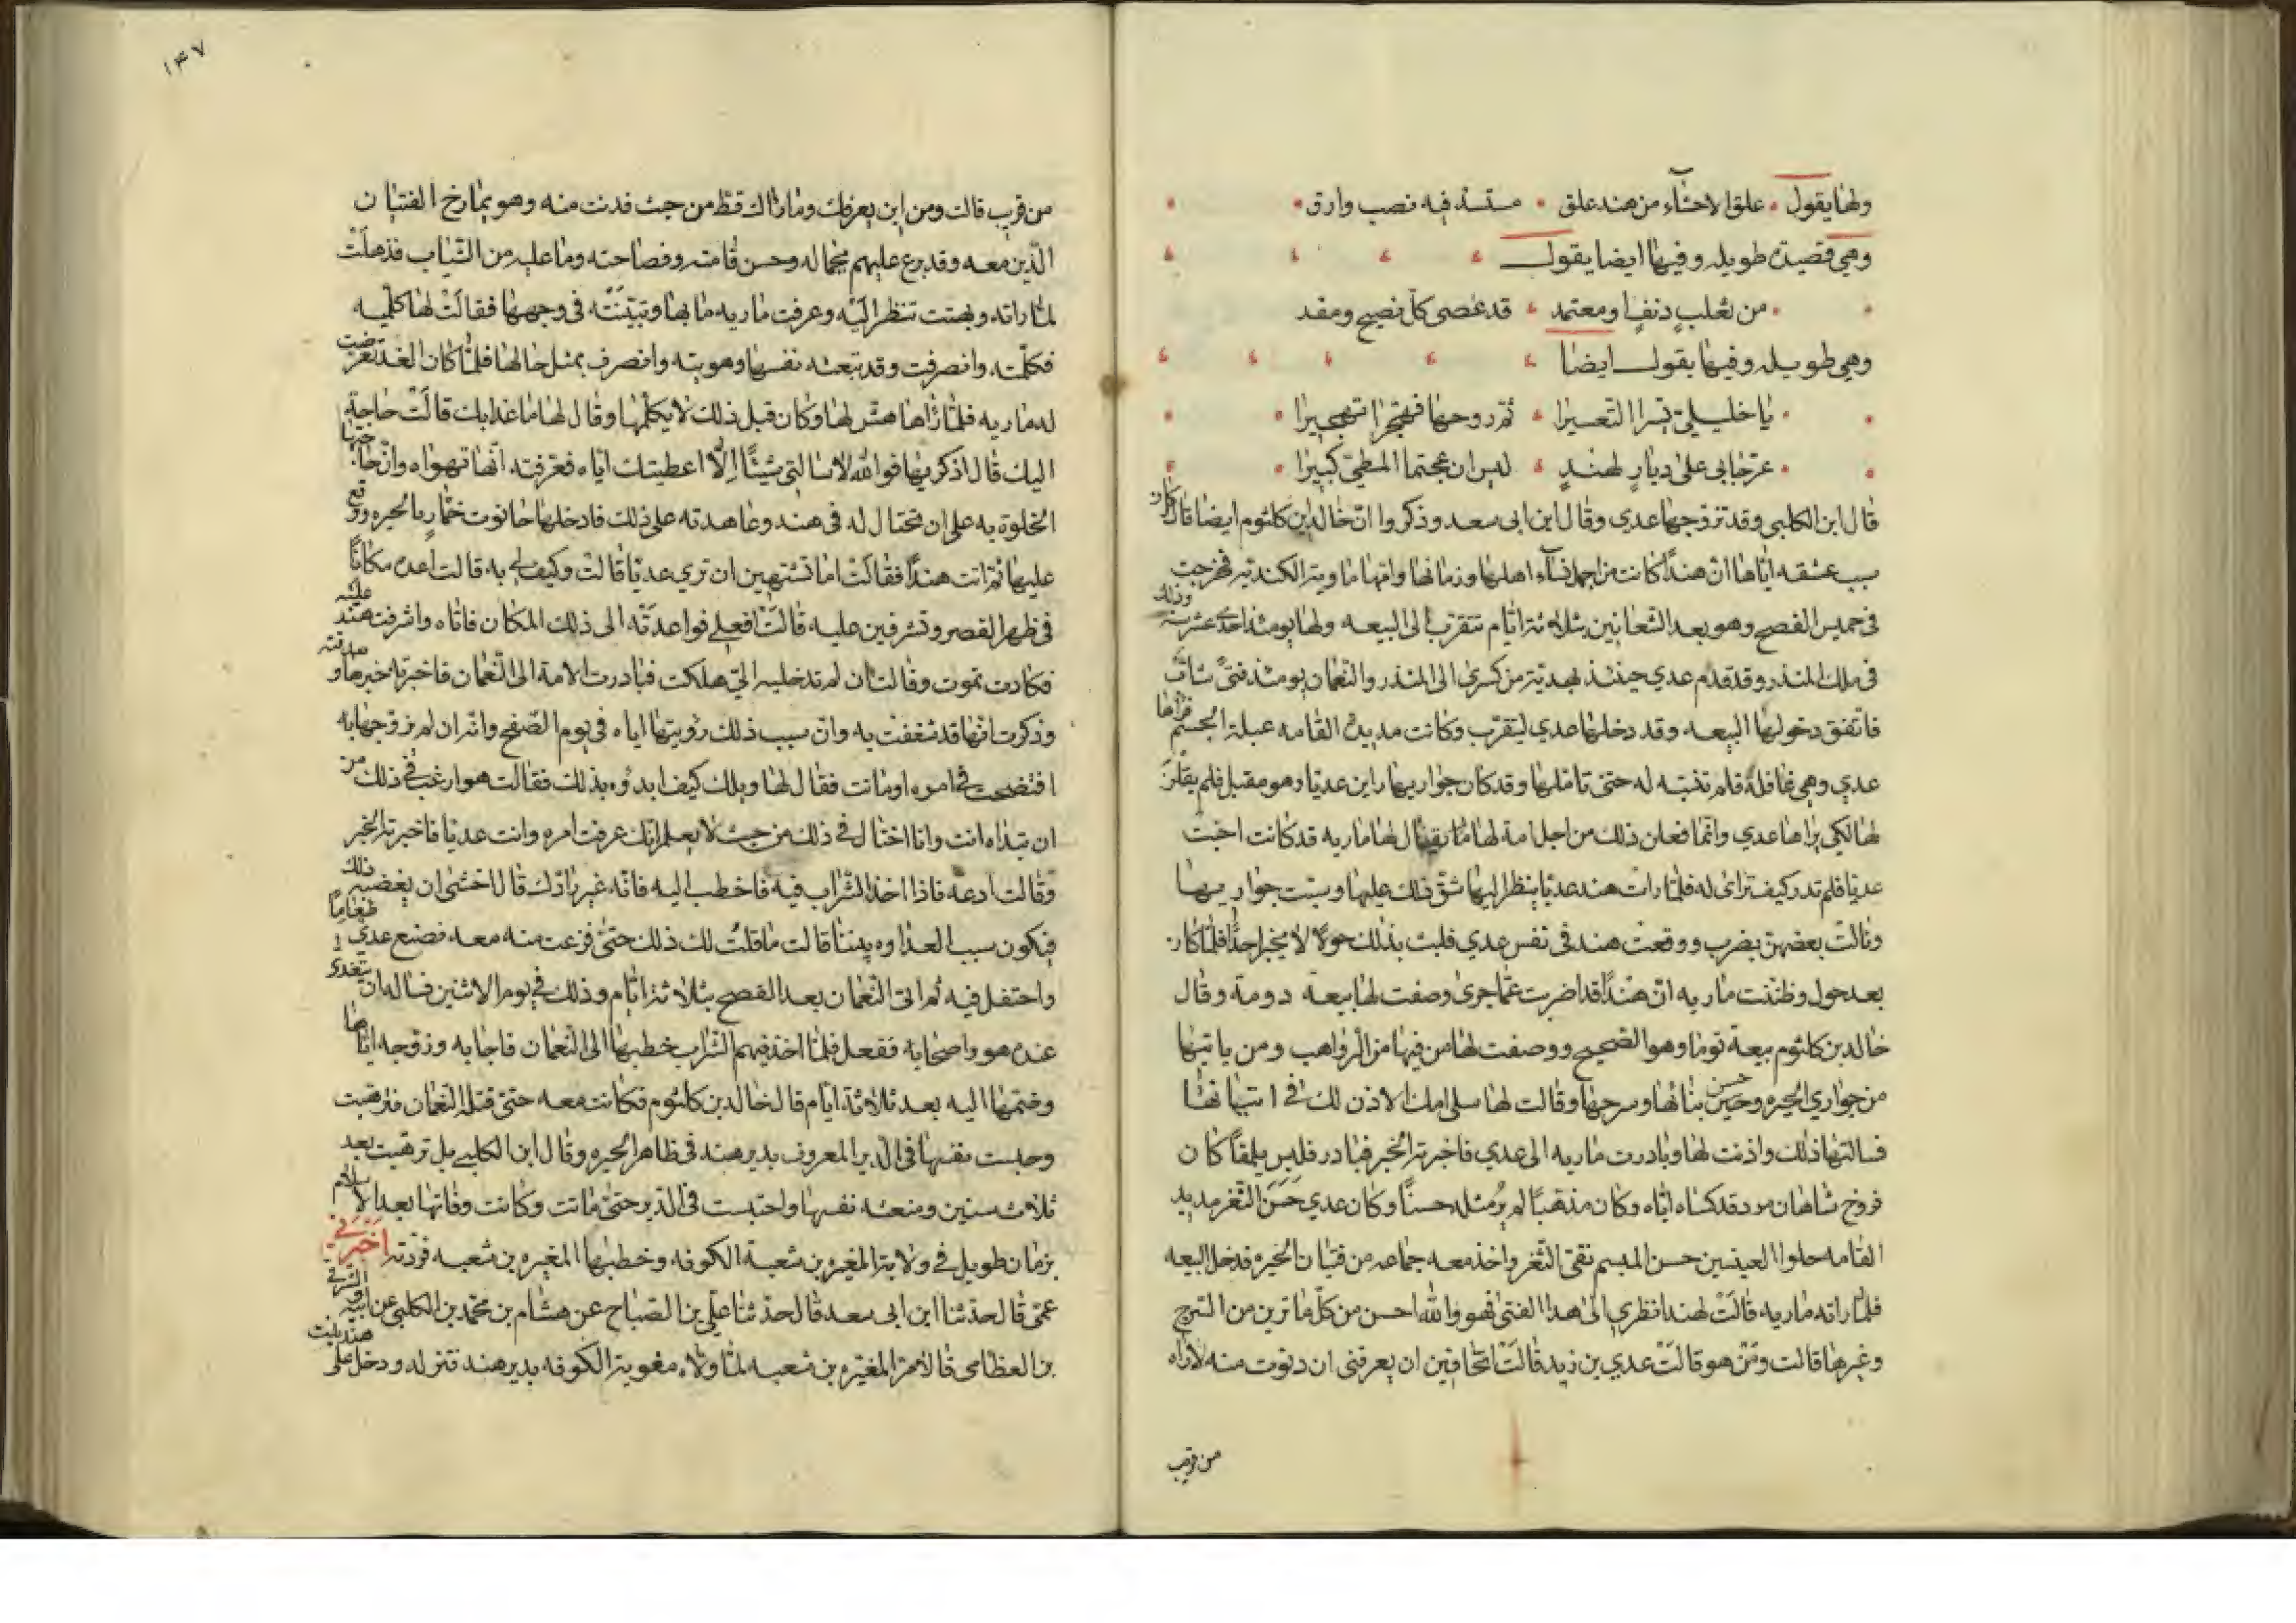 ولها يقول • علق الاحشاء من هند علق • مستسر فيه نصب وارق •
وهي قصيدة طويله وفيها ايضا يقول
• من لقلب دنف او معتمد • قد عصى كل نصيح ومفد
وهي طويله وفيها يقول ايضا
• يا خليلي يسرا التعسيرا • ثم روحا فهجرا تهجيرا •
• عرجا بي على ديار لهند • ليس ان عجتما المطي كبيرا •
قال ابن الكلبي وقد تزوجها عدي وقال ابن ابي سعد وذكروا ان خالد بن كلثوم ايضا قال كان
سبب عشقه اياها ان هندا كانت من اجمل نساء اهلها وزمانها وامها ماويه الكنديه فخرجت
في خميس الفصح وهو بعد الشعانين بثلاثة ايام تتقرب الى البيعه ولها يومئذ احدى عشر سنة وذلك
في ملك المنذر وقد قدم عدي حينئذ بهدية من كسرى الى المنذر والنعمان يومئذ فتى شاب
فاتفق دخولها البيعه وقد دخلها عدي ليتقرب وكانت مديدة القامه عبلة الجسم فراها
عدي وهي غافلة فلم تنتبه له حتى تاملها وقد كان جواريها راين عديا وهو مقبل فلم يقلن
لها لكي يراها عدي وانما فعلن ذلك من اجل امة لها يقال لها ماريه قد كانت احبت
عديا فلم تدر كيف تراى له فلما رات هند عديا ينظر اليها شق ذلك عليها وسبت جواريها
ونالت بعضهن بضرب ووقعت هند في نفس عدي فلبث بذلك حولا لا يخبر احدا فلما كان
بعد حول وظننت ماريه ان هندا قد اضربت عما جرى وصفت لها بيعة دومة وقال
خالد بن كلثوم بيعة توما وهو الصحيح ووصفت لها من فيها من الرواهب ومن ياتيها
من جواري الحيره وحسن بنائها وسرجها وقالت لها سلي امك الاذن لك في اتيانها
فسالتها ذلك واذنت لها وبادرت ماريه الى عدي فاخبرته الخبر فبادر فلبس يلمقا كان
فروخ شاهان مرد قد كساه اياه وكان مذهبا لم ير مثله حسنا وكان عدي حسن الثغر مديد
القامه حلو العينين حسن المبسم نقي الثغر واخذ معه جماعه من فتيان الحيره فدخل البيعه
فلما راته ماريه قالت لهند انظري الى هذا الفتى فهو والله احسن من كل ما ترين من السرج
وغيرها قالت ومن هو قالت عدي بن زيد قالت اتخافين ان يعرفني ان دنوت منه لاراه
من قرب
١٤٧
من قرب قالت ومن اين يعرفك وما راك قط من حيث فدنت منه وهو يمازح الفتيان
الذين معه وقد برع عليهم بجماله وحسن قامته وفصاحته وما عليه من الثياب فذهلت
لما راته وبهتت تنظر اليه وعرفت ماريه ما بها وتبينته في وجهها فقالت لها كلميه
فكلمته وانصرفت وقد تبعته نفسها وهويته وانصرف بمثل حالها فلما كان الغد تعرضت
له ماريه فلما راها هش لها وكان قبل ذلك لا يكلمها وقال لها ما غدا بك قالت حاجة
اليك قال اذكريها فوالله لا سالتي شيئا الا اعطيتك اياه فعرفته انها تهواه وان حاجتها
الخلوة به على ان تحتال له في هند وعاهدته على ذلك فادخلها حانوت خمار بالحيره ووقع
عليها ثم اتت هندا فقالت اما تشتهين ان تري عديا قالت وكيف لي به قالت اعده مكانا
في ظهر القصر وتشرفين عليه قالت افعلي فواعدته الى ذلك المكان فاتاه واشرفت هند عليه
فكادت تموت وقالت ان لم تدخليه الي هلكت فبادرت الامة الى النعمان فاخبرته خبرها وصدقته
وذكرت انها قد شغفت به وان سبب ذلك رؤيتها اياه في يوم الفصح وانه ان لم يزوجها به
افتضحت في امره او ماتت فقال لها ويلك كيف ابدؤه بذلك فقالت هو ارغب في ذلك من
ان تبداه انت وانا احتال في ذلك من حيث لا يعلم انك عرفت امره واتت عديا فاخبرته الخبر
وقالت ادعه فاذا اخذ الشراب فيه فاخطب اليه فانه غير رادك قال اخشى ان يغضبه ذلك
فيكون سبب العداوه بيننا قالت ما قلت لك ذلك حتى فرغت منه معه فصنع عدي طعاما
واحتفل فيه ثم اتى النعمان بعد الفصح بثلاثة ايام وذلك في يوم الاثنين فساله ان يتغدى
عنده هو واصحابه ففعل فلما اخذ فيهم الشراب خطبها الى النعمان فاجابه وزوجه اياها
وضمها اليه بعد ثلاثة ايام قال خالد بن كلثوم فكانت معه حتى قتله النعمان فترهبت
وحبست نفسها في الدير المعروف بدير هند في ظاهر الحيره وقال ابن الكلبي بل ترهبت بعد
ثلاث سنين ومنعته نفسها واحتبست في الدير حتى ماتت وكانت وفاتها بعد الاسلام
بزمان طويل في ولاية المغيره بن شعبة الكوفه وخطبها المغيره بن شعبه فردته اخبرني
عمي قال حدثنا ابن ابي سعد قال حدثنا علي بن الصباح عن هشام بن محمد بن الكلبي عن ابيه والشرقي
بن القطامي قالا مر المغيره بن شعبه لما ولاه معويه الكوفه بدير هند فنزله ودخل على هند بنت